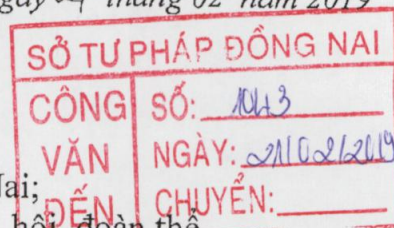 tháng 02 năm 2019
SỞ TƯ PHÁP ĐỒNG NAI
CÔNG VĂN ĐẾN
SỐ: 1043
NGÀY: 21/02/2019
CHUYỂN:
Nai;
hội, đoàn thể